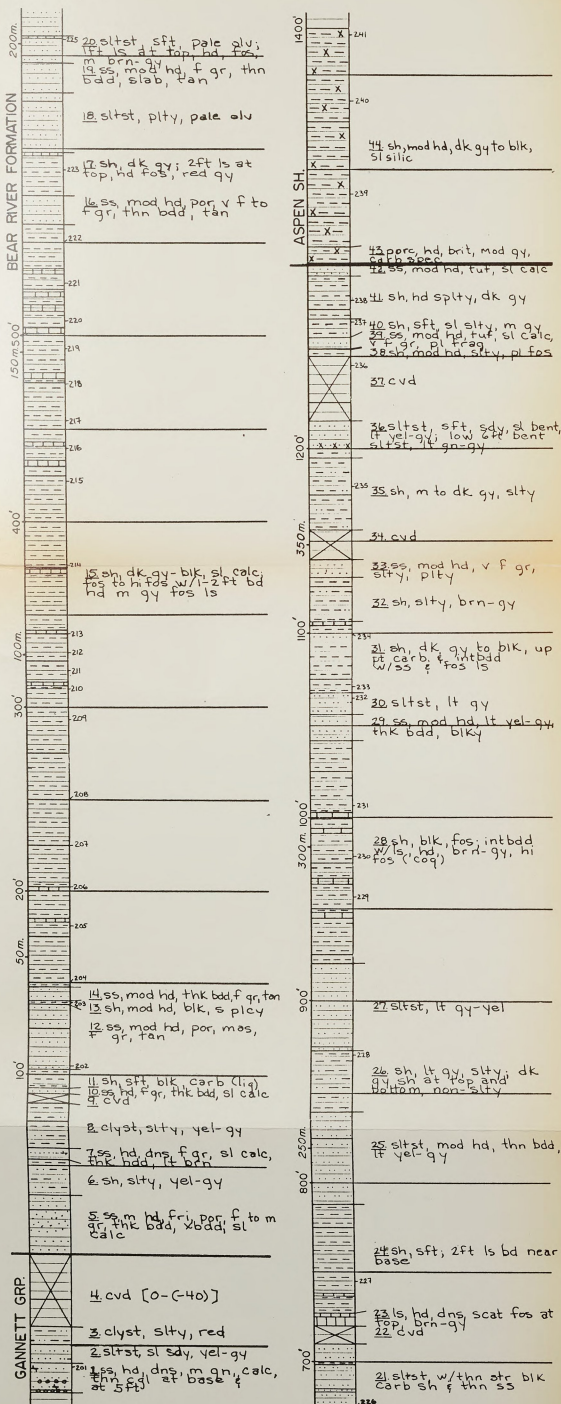 200m.
150m.
500'
400'
100m.
300'
200'
50m.
100'
BEAR RIVER FORMATION
GANNETT GRP.
225
20. sltst, sft, pale olv;
1ft ls at top, hd, fos,
m brn-gy
19. ss, mod hd, f gr, thn
bdd, slab, tan
18. sltst, plty, pale olv
223
17. sh, dk gy; 2ft ls at
top, hd fos, red gy
16. ss, mod hd, por, v f to
f gr, thn bdd, tan
222
221
220
219
218
217
216
215
214
15. sh, dk gy-blk, sl calc;
fos to hifos w/1-2 ft bd
hd m gy fos ls
213
212
211
210
209
208
207
206
205
204
14. ss, mod hd, thk bdd, f gr, tan
203
13. sh, mod hd, blk, s plcy
12. ss, mod hd, por, mas,
f gr, tan
202
11. sh, sft, blk, carb (lig)
10. ss, hd, f gr, thk bdd, sl calc
9. cvd
8. clyst, slty, yel-gy
7. ss, hd, dns, f gr, sl calc,
thk bdd, lt brn
6. sh, slty, yel-gy
5. ss, m hd, fri, por, f to m
gr, thk bdd, xbdd, sl
calc
4. cvd [0-(-40)]
3. clyst, slty, red
2. sltst, sl sdy, yel-gy
201
1. ss, hd, dns, m gn, calc,
thn cgl at base &
at 5ft
1400'
1200'
350m.
1100'
1000'
300m.
900'
250m.
800'
700'
ASPEN SH.
241
240
44. sh, mod hd, dk gy to blk,
sl silic
239
43. porc, hd, brit, mod gy,
carb spec
42. ss, mod hd, tuf, sl calc
238
41. sh, hd splty, dk gy
237
40. sh, sft, sl slty, m gy
39. ss, mod hd, tuf, sl calc,
v f gr, pl frag
38. sh, mod hd, slty, pl fos
236
37. cvd
36. sltst, sft, sdy, sl bent,
lt yel-gy; low 6ft bent
sltst, lt gn-gy
235
35. sh, m to dk gy, slty
34. cvd
33. ss, mod hd, v f gr,
slty, plty
32. sh, slty, brn-gy
234
31. sh, dk gy to blk, up
pt carb. & intbdd
w/ss & fos ls
233
232
30. sltst, lt gy
29. ss, mod hd, lt yel-gy,
thk bdd, blky
231
28. sh, blk, fos; intbdd
230
w/ls, hd, brn-gy, hi
fos ('coq')
229
27. sltst, lt gy-yel
228
26. sh, lt gy, slty; dk
gy sh at top and
bottom, non-slty
25. sltst, mod hd, thn bdd,
lt yel-gy
24. sh, sft; 2ft ls bd near
base
227
23. ls, hd, dns, scat fos at
top, brn-gy
22. cvd
21. sltst, w/thn str blk
carb sh & thn ss
226